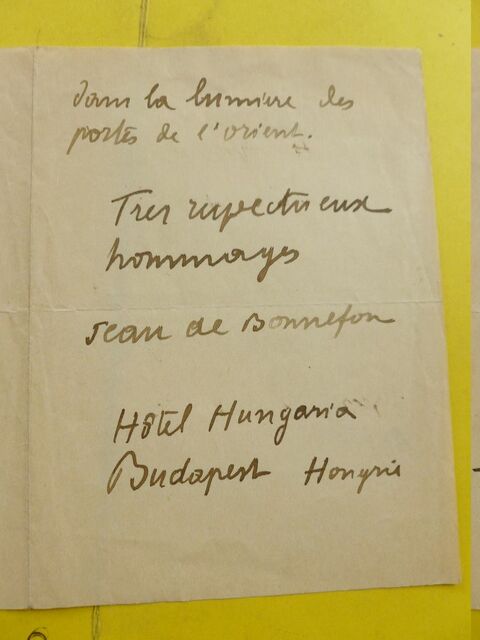 dans la lumière des
portes de l'orient.
Tres respectueux
hommages
Jean de Bonnefon
Hôtel Hungaria
Budapest Hongrie